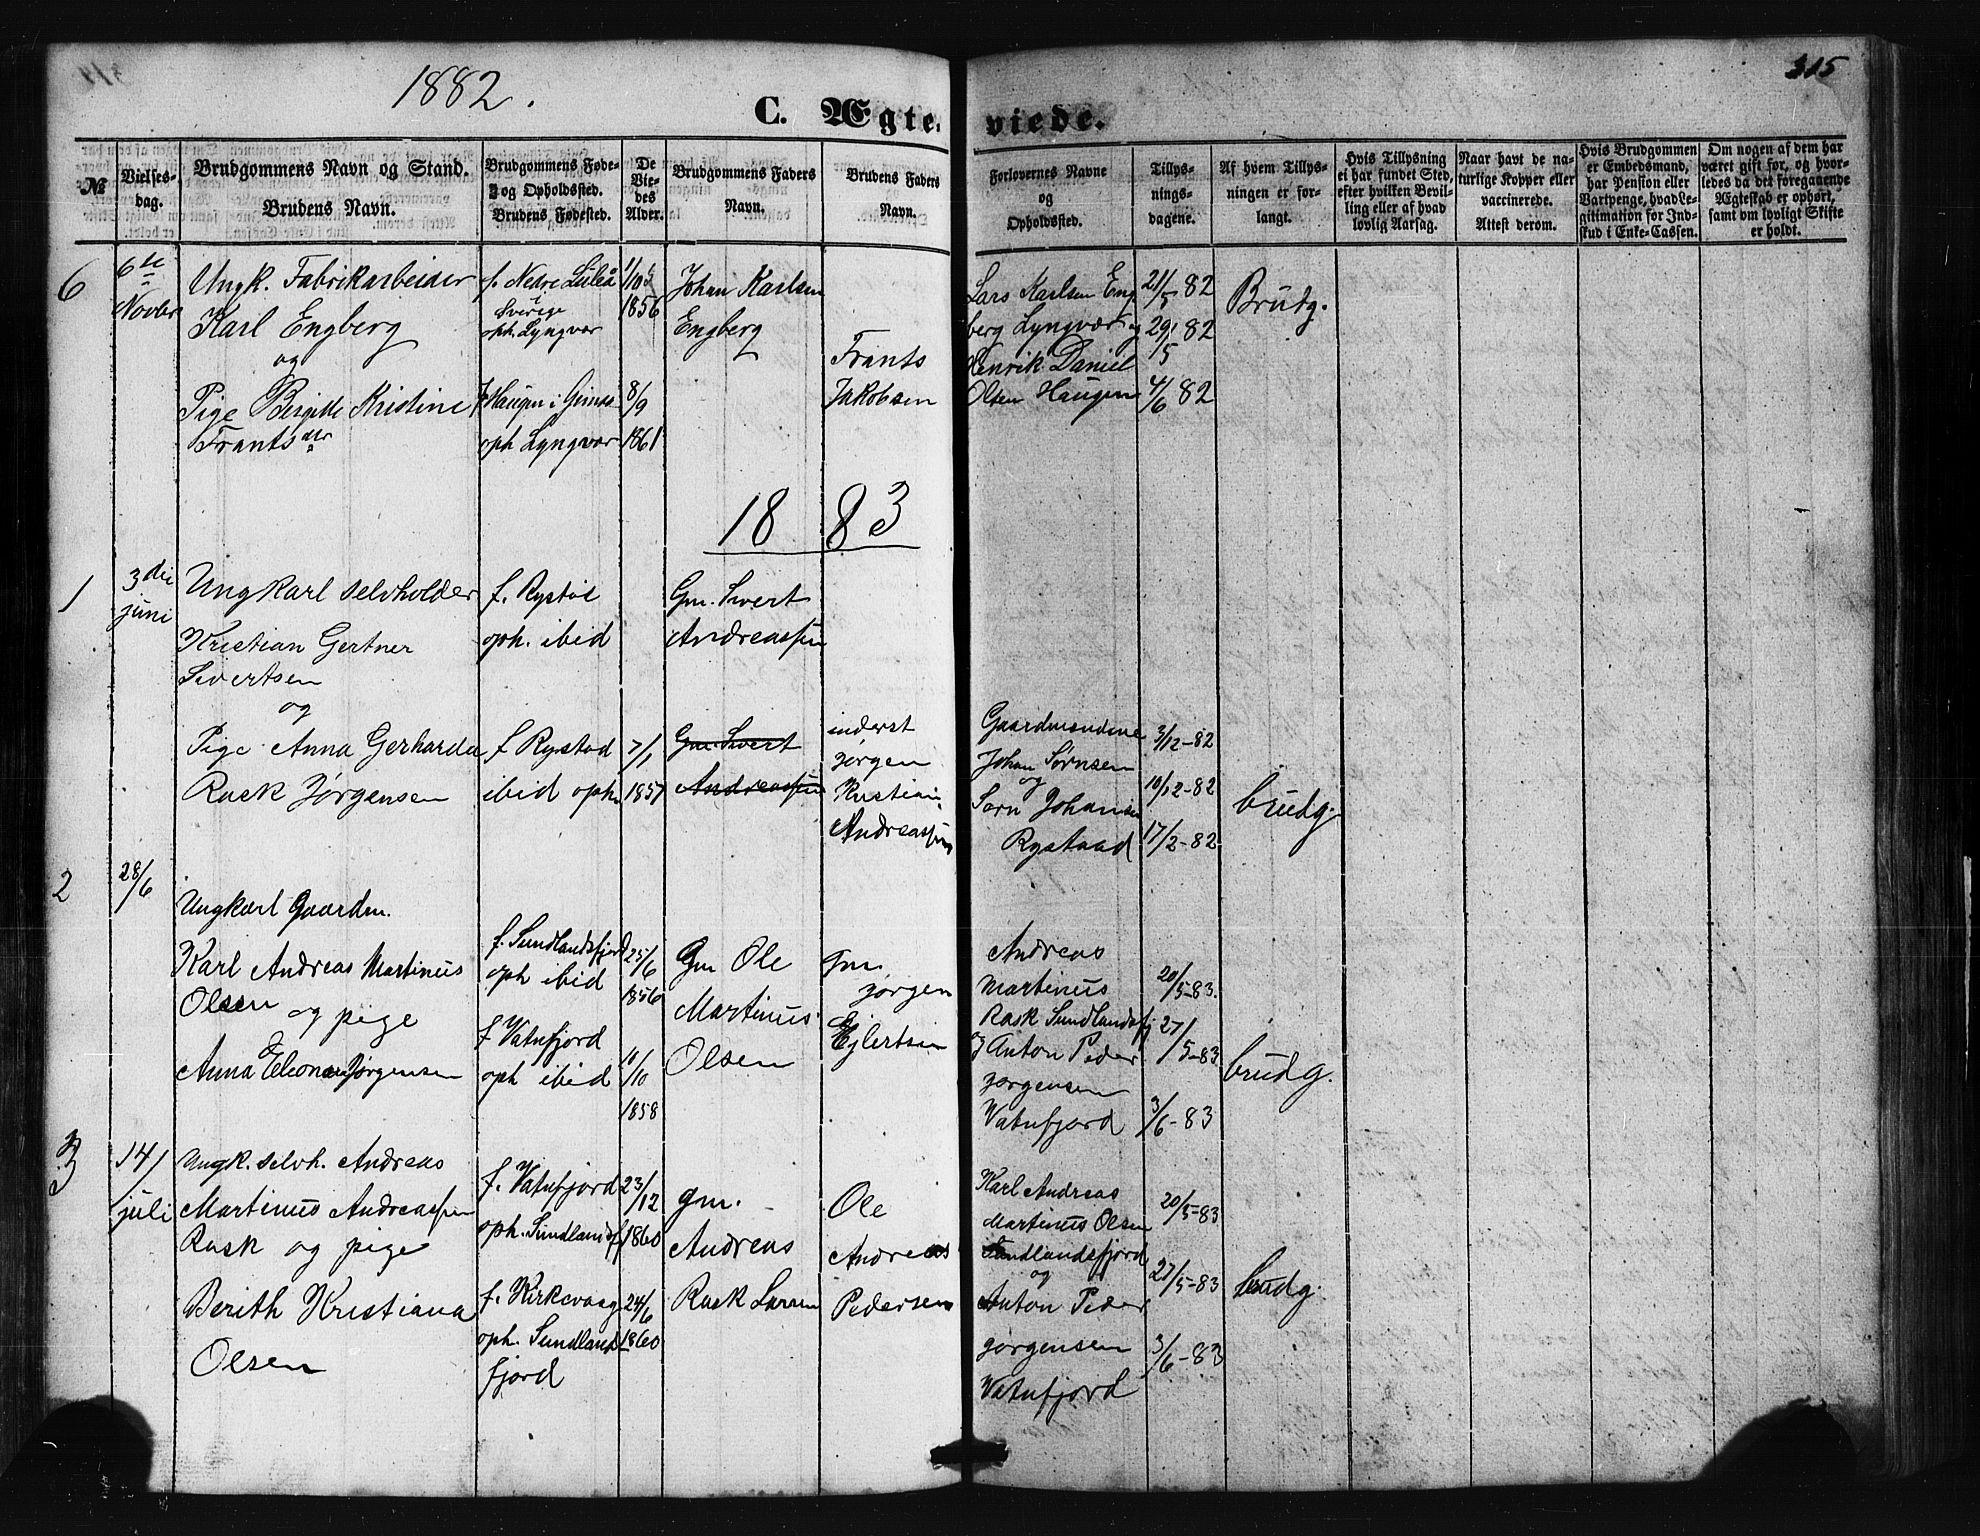 1882.
315
C. Ægte-
viede.
№
Vielses-
dag.
Brudgommens Navn og Stand.
Brudens Navn.
Brudgommens Føde-
og Opholdssted.
Brudens Fødested.
De
Vie-
des
Alder.
Brudgommens Faders
Navn.
Brudens Faders
Navn.
Forlovernes Navne
og
Opholdssted.
Tillys-
nings-
dagene.
Af hvem Tillys-
ningen er for-
langt.
Hvis Tillysning
ei har fundet Sted,
efter hvilken Bevil-
ling eller af hvad
lovlig Aarsag.
Naar havt de na-
turlige Kopper eller
vaccinerede.
Attest derom.
Hvis Brudgommen
er Embedsmand,
har Pension eller
Vartpenge, hvad Le-
gitimation for Ind-
skud i Enke-Cassen.
Om nogen af dem har
været gift før, og hvor-
ledes da det foregaaende
Ægteskab er ophørt,
samt om lovligt Skifte
er holdt.
6
6te
Novbr
Ungk. Fabrikarbeider
Karl Engberg
og
Pige Bergitte Kristine
Frantsdtr
f. Nedre Luleå
i
Sverige
oph. Lyngvær
f Haugen i Gimsø
oph Lyngvær
1856
8/9
1861
Johan Karlsen
Engberg
Frants
Jakobsen
Lars Karlsen Eng
berg Lyngvær og
Henrik Daniel
Olsen Haugen
21/5 82
29/5 82
4/6 82
Brudg.
1883
1
3die
juni
Ungkarl selvholder
Kristian Gertner
Sivertsen
og
Pige Anna Gerharda
Rask Jørgensen
f. Rystad
oph. ibid
f Rystad
ibid oph
7/1
1857
Gm. Sivert
Andreassen
Gm. Sivert
Andreassen
inderst
Jørgen
Kristian
Andreassen
Gaardmændene
Johan Sørnsen
og
Sørn Johansen
Rystaad
3/12-82
10/12-82
17/2-82
brudg.
2
28/6
Ungkarl Gaardm.
Karl Andreas Martinus
Olsen og pige
Anna Eleonora Jørgensen
f. Sundlandsfjord
oph ibid
f Vatnfjord
oph ibid
25/6
1856
10/10
1858
Gm Ole
Martinus
Olsen
Gm.
Jørgen
Ejlertsen
Andreas
Martinus
Rask Sundlandsfj
og Anton Peder
Jørgensen
Vatnfjord
20/5-83.
27/5-83
3/6-83
brudg.
3
14/
juli
Ungk. selvh. Andreas
Martinus Andreassen
Rask og pige
Berith Kristiana
Olsen
f. Vatnfjord
oph. Sundlandsf
f. Kirkevaag
oph. Sundlands
fjord
23/12
1860
24/6
1860
Gm.
Andreas
Rask Larsen
Ole
Andreas
Pedersen
Karl Andreas
Martinus Olsen
Sundlandsfjord
og
Anton Peder
Jørgensen
Vatnfjord
20/5-83
27/5-83
3/6-83
brudg.